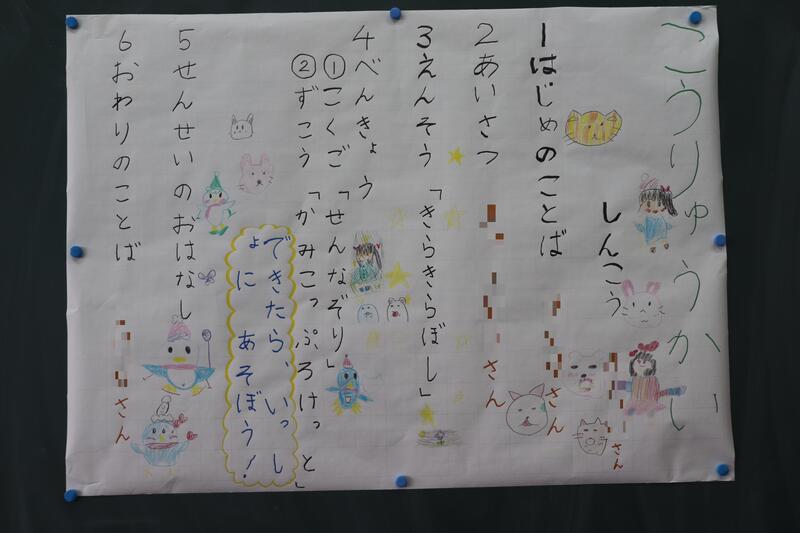 こうりゅうかい
しんこう
さん
さん
1はじめのことば
2あいさつ
さん
3えんそう「きらきらぼし」
4べんきょう
①こくご「せんなぞり」
②ずこう「かみこっぷろけっと」
できたら、いっし
ょに あそぼう!
5せんせいのおはなし
6おわりのことば
さん